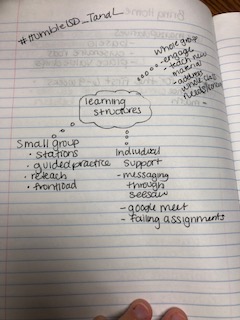 #HumbleISD_TandL
whole group
- engage
- teach new
material
- address
whole class
learning
structures
Small group
• stations
• guided practice
• reteach
• frontload
Individual
support
- messaging
through
seesaw
- google meet
- failing assignments